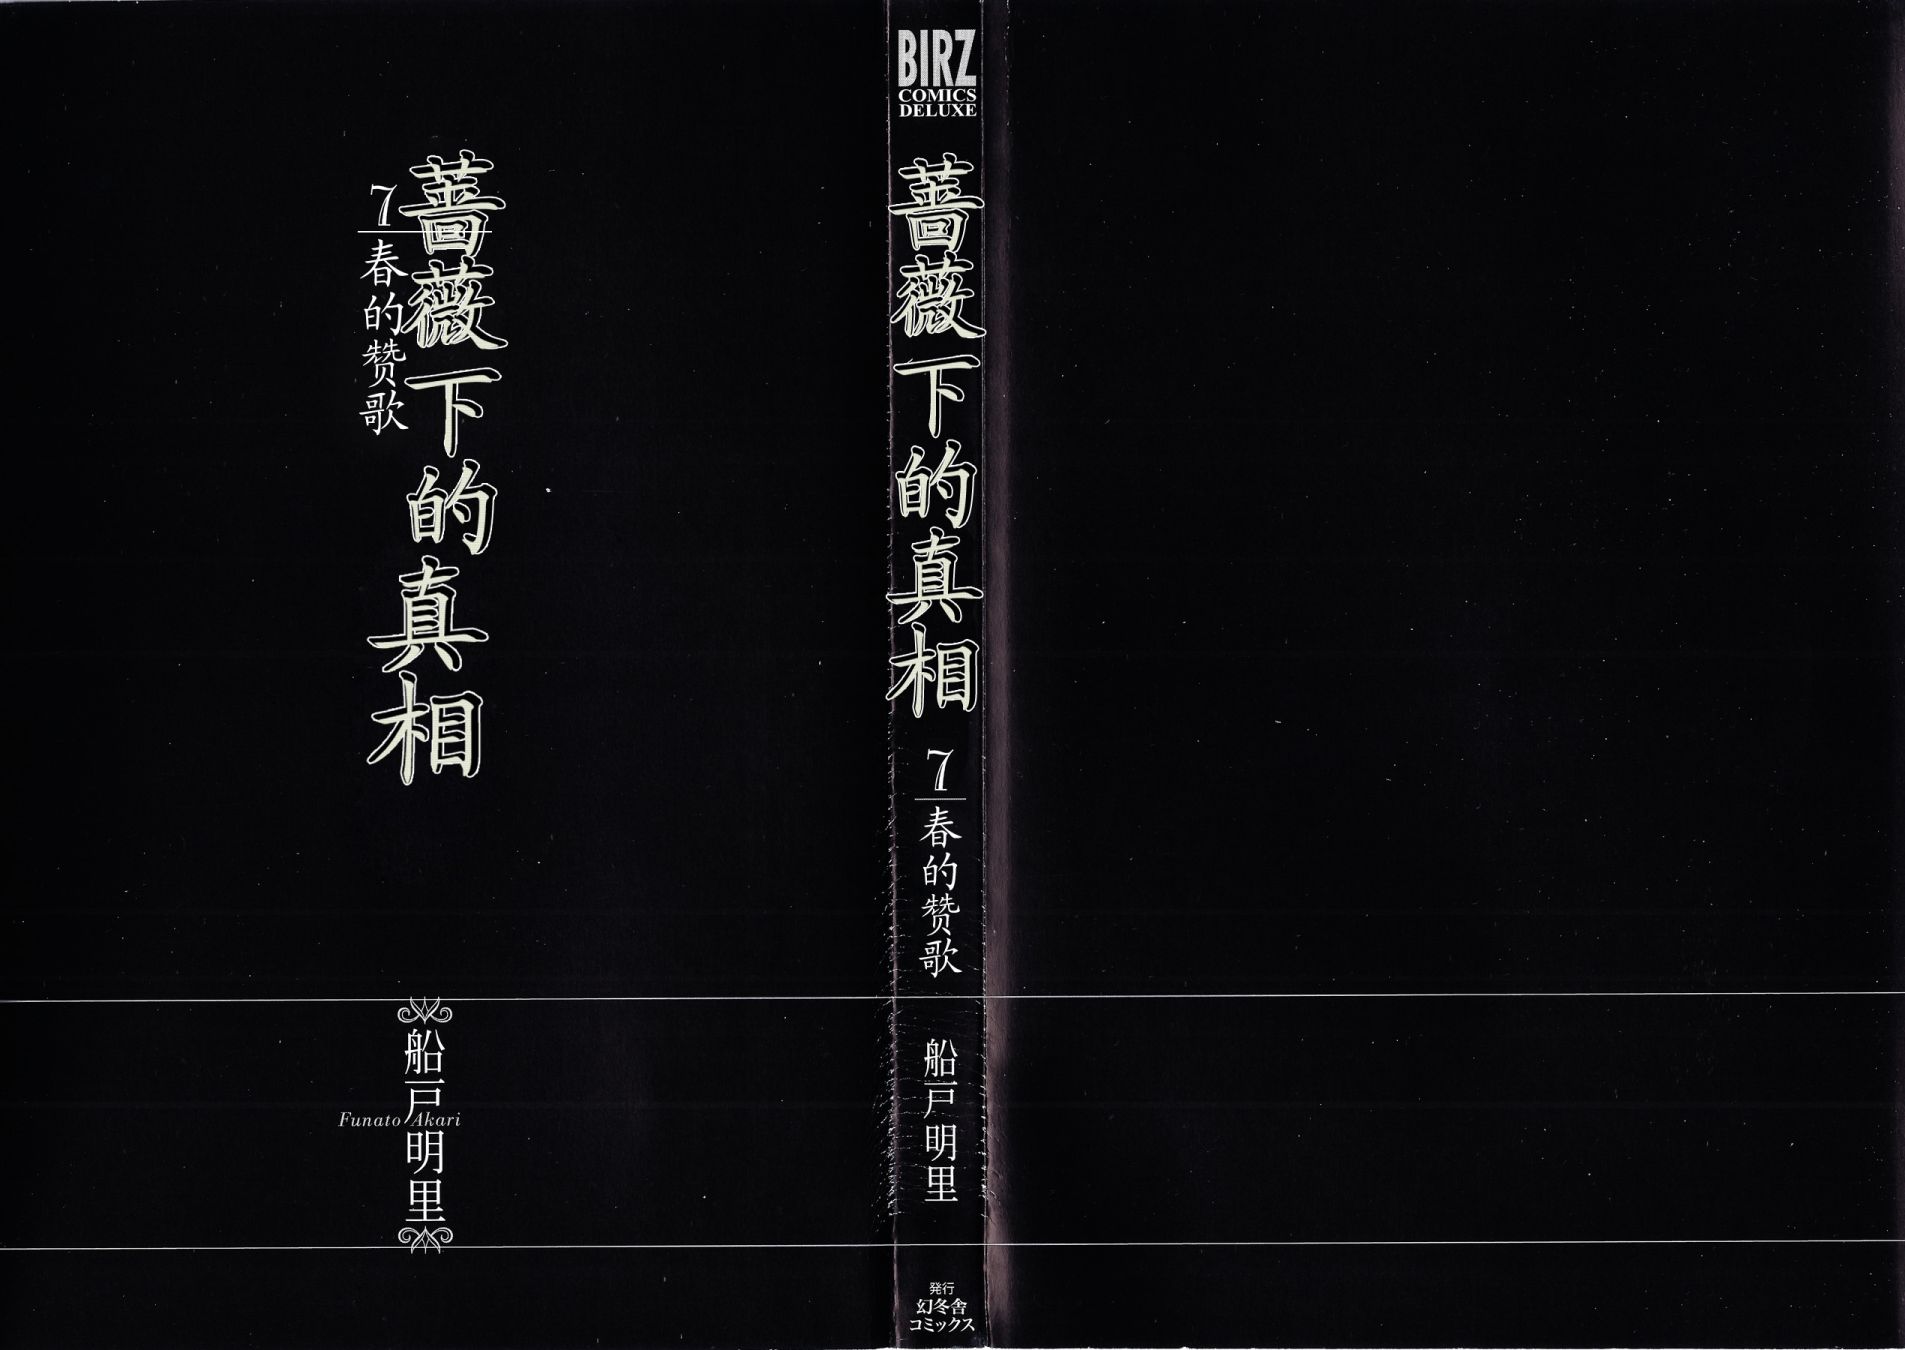 蔷薇下的真相
7
春的赞歌
船戸明里
Funato Akari
BIRZ
COMICS
DELUXE
蔷薇下的真相
7
春的赞歌
船戸明里
発行
幻冬舎
コミックス